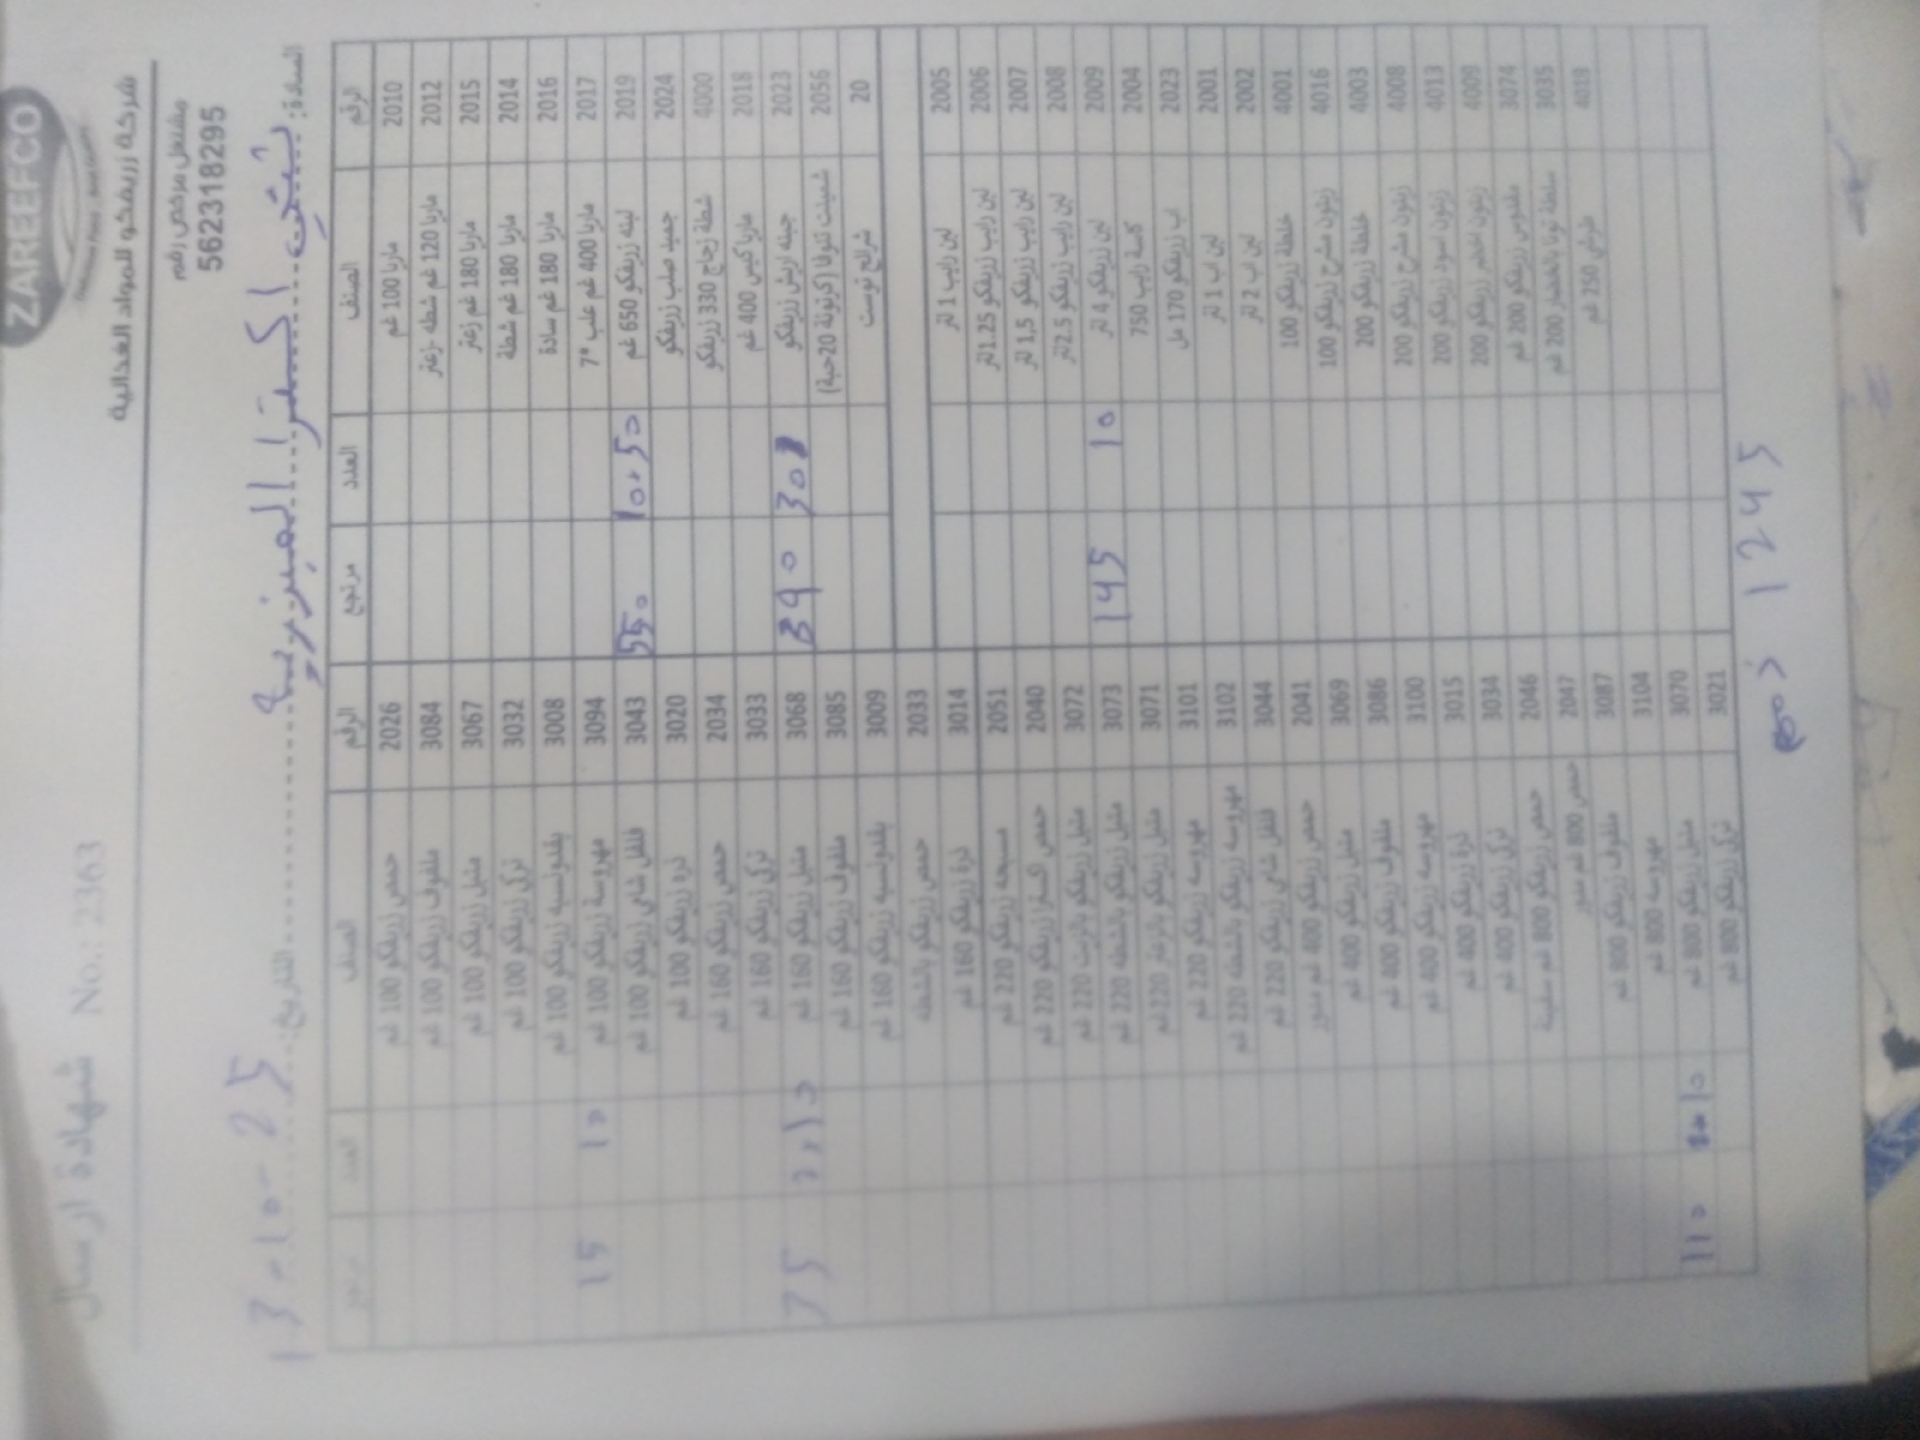 ZAREEFCO
شركة زريفكو للمواد الغذائية
شهادة ارسال No.: 2363
مشتغل مرخص رقم
562318295
السادة: اكسترا العيزرية
التاريخ: 13-10-25
الرقم الصنف العدد مرتجع الرقم الصنف العدد مرتجع
2010 ماربا 100 غم 2026 حمص زريفكو 100 غم
2012 ماربا 120 غم شطه -زعتر 3084 ملفوف زريفكو 100 غم
2015 ماربا 180 غم زعتر 3067 متبل زريفكو 100 غم
2014 ماربا 180 غم شطة 3032 تركي زريفكو 100 غم
2016 ماربا 180 غم سادة 3008 بقدونسيه زريفكو 100 غم
2017 ماربا 400 غم علب *7 3094 مهروسة زريفكو 100 غم 10 15
2019 لبنه زريفكو 650 غم 10+50 550 3043 فلفل شامي زريفكو 100 غم
2024 جميد صلب زريفكو 3020 ذره زريفكو 100 غم
4000 شطة زجاج 330 زريفكو 2034 حمص زريفكو 160 غم
2018 ماربا كيس 400 غم 3033 تركي زريفكو 160 غم
2023 جبنه اريش زريفكو 30 390 3068 متبل زريفكو 160 غم 75
2056 شمينت تنوفا (كرتونة 20حبة) 3085 ملفوف زريفكو 160 غم
20 شرائح توست 3009 بقدونسيه زريفكو 160 غم
2033 حمص زريفكو بالشطه
2005 لبن رايب 1 لتر 3014 ذرة زريفكو 160 غم
2006 لبن رايب زريفكو 1.25لتر 2051 مسبحه زريفكو 220 غم
2007 لبن رايب زريفكو 1,5 لتر 2040 حمص اكسترا زريفكو 220 غم
2008 لبن رايب زريفكو 2.5لتر 3072 متبل زريفكو بالزيت 220 غم
2009 لبن زريفكو 4 لتر 10 145 3073 متبل زريفكو بالشطه 220 غم
2004 كاسة رايب 750 3071 متبل زريفكو بالزعتر 220 غم
2023 اب زريفكو 170 مل 3101 مهروسه زريفكو 220 غم
2001 لبن اب 1 لتر 3102 مهروسه زريفكو بالشطه 220 غم
2002 لبن اب 2 لتر 3044 فلفل شامي زريفكو 220 غم
4001 خلطة زريفكو 100 2041 حمص زريفكو 400 غم مدور
4016 زيتون مشرح زريفكو 100 3069 متبل زريفكو 400 غم
4003 خلطة زريفكو 200 3086 ملفوف زريفكو 400 غم
4008 زيتون مشرح زريفكو 200 3100 مهروسه زريفكو 400 غم
4013 زيتون اسود زريفكو 200 3015 ذرة زريفكو 400 غم
4009 زيتون اخضر زريفكو 200 3034 تركي زريفكو 400 غم
3074 مقدوس زريفكو 200 غم 2046 حمص زريفكو 800 غم سفينة
3035 سلطة تونا بالخضار 200 غم 2047 حمص 800 غم مدور
4019 طرشي 250 غم 3087 ملفوف زريفكو 800 غم
3104 مهروسه 800 غم
3070 متبل زريفكو 800 غم 110
3021 تركي زريفكو 800 غم
1245